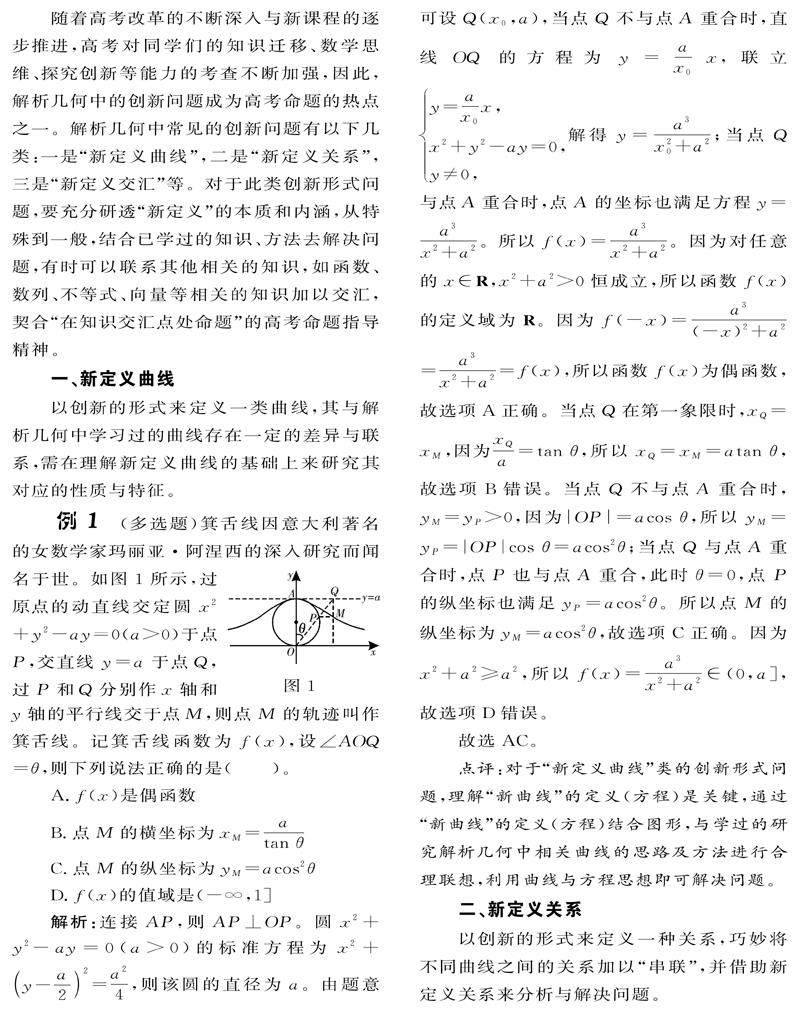 随着高考改革的不断深入与新课程的逐
步推进,高考对同学们的知识迁移、数学思
维、探究创新等能力的考查不断加强,因此,
解析几何中的创新问题成为高考命题的热点
之一。解析几何中常见的创新问题有以下几
类:一是“新定义曲线”,二是“新定义关系”,
三是“新定义交汇”等。对于此类创新形式问
题,要充分研透“新定义”的本质和内涵,从特
殊到一般,结合已学过的知识、方法去解决问
题,有时可以联系其他相关的知识,如函数、
数列、不等式、向量等相关的知识加以交汇,
契合“在知识交汇点处命题”的高考命题指导
精神。
一、新定义曲线
以创新的形式来定义一类曲线,其与解
析几何中学习过的曲线存在一定的差异与联
系,需在理解新定义曲线的基础上来研究其
对应的性质与特征。
例 1 (多选题)箕舌线因意大利著名
的女数学家玛丽亚·阿涅西的深入研究而闻
名于世。如图 1 所示,过
原点的动直线交定圆 x²
+y²-ay=0(a>0)于点
P,交直线 y=a 于点 Q,
过 P 和 Q 分别作 x 轴和
y A Q y=a P M θ O x
图 1
y 轴的平行线交于点 M,则点 M 的轨迹叫作
箕舌线。记箕舌线函数为 f(x),设∠AOQ
=θ,则下列说法正确的是(  )。
A. f(x)是偶函数
B. 点 M 的横坐标为 x_M=a/tan θ
C. 点 M 的纵坐标为 y_M=acos²θ
D. f(x)的值域是(-∞,1]
解析:连接 AP,则 AP⊥OP。圆 x²+
y²-ay=0(a>0)的标准方程为 x²+
(y-a/2)²=a²/4,则该圆的直径为 a。由题意
可设 Q(x₀,a),当点 Q 不与点 A 重合时,直
线 OQ 的方程为 y=a/x₀ x,联立
{y=a/x₀ x,
x²+y²-ay=0,解得 y=a³/(x₀²+a²);当点 Q
y≠0,
与点 A 重合时,点 A 的坐标也满足方程 y=
a³/(x²+a²)。所以 f(x)=a³/(x²+a²)。因为对任意
的 x∈R,x²+a²>0 恒成立,所以函数 f(x)
的定义域为 R。因为 f(-x)=a³/((-x)²+a²)
=a³/(x²+a²)=f(x),所以函数 f(x)为偶函数,
故选项 A 正确。当点 Q 在第一象限时,x_Q=
x_M,因为x_Q/a=tan θ,所以 x_Q=x_M=atan θ,
故选项 B 错误。当点 Q 不与点 A 重合时,
y_M=y_P>0,因为|OP|=acos θ,所以 y_M=
y_P=|OP|cos θ=acos²θ;当点 Q 与点 A 重
合时,点 P 也与点 A 重合,此时 θ=0,点 P
的纵坐标也满足 y_P=acos²θ。所以点 M 的
纵坐标为 y_M=acos²θ,故选项 C 正确。因为
x²+a²≥a²,所以 f(x)=a³/(x²+a²)∈(0,a],
故选项 D 错误。
故选 AC。
点评:对于“新定义曲线”类的创新形式问
题,理解“新曲线”的定义(方程)是关键,通过
“新曲线”的定义(方程)结合图形,与学过的研
究解析几何中相关曲线的思路及方法进行合
理联想,利用曲线与方程思想即可解决问题。
二、新定义关系
以创新的形式来定义一种关系,巧妙将
不同曲线之间的关系加以“串联”,并借助新
定义关系来分析与解决问题。